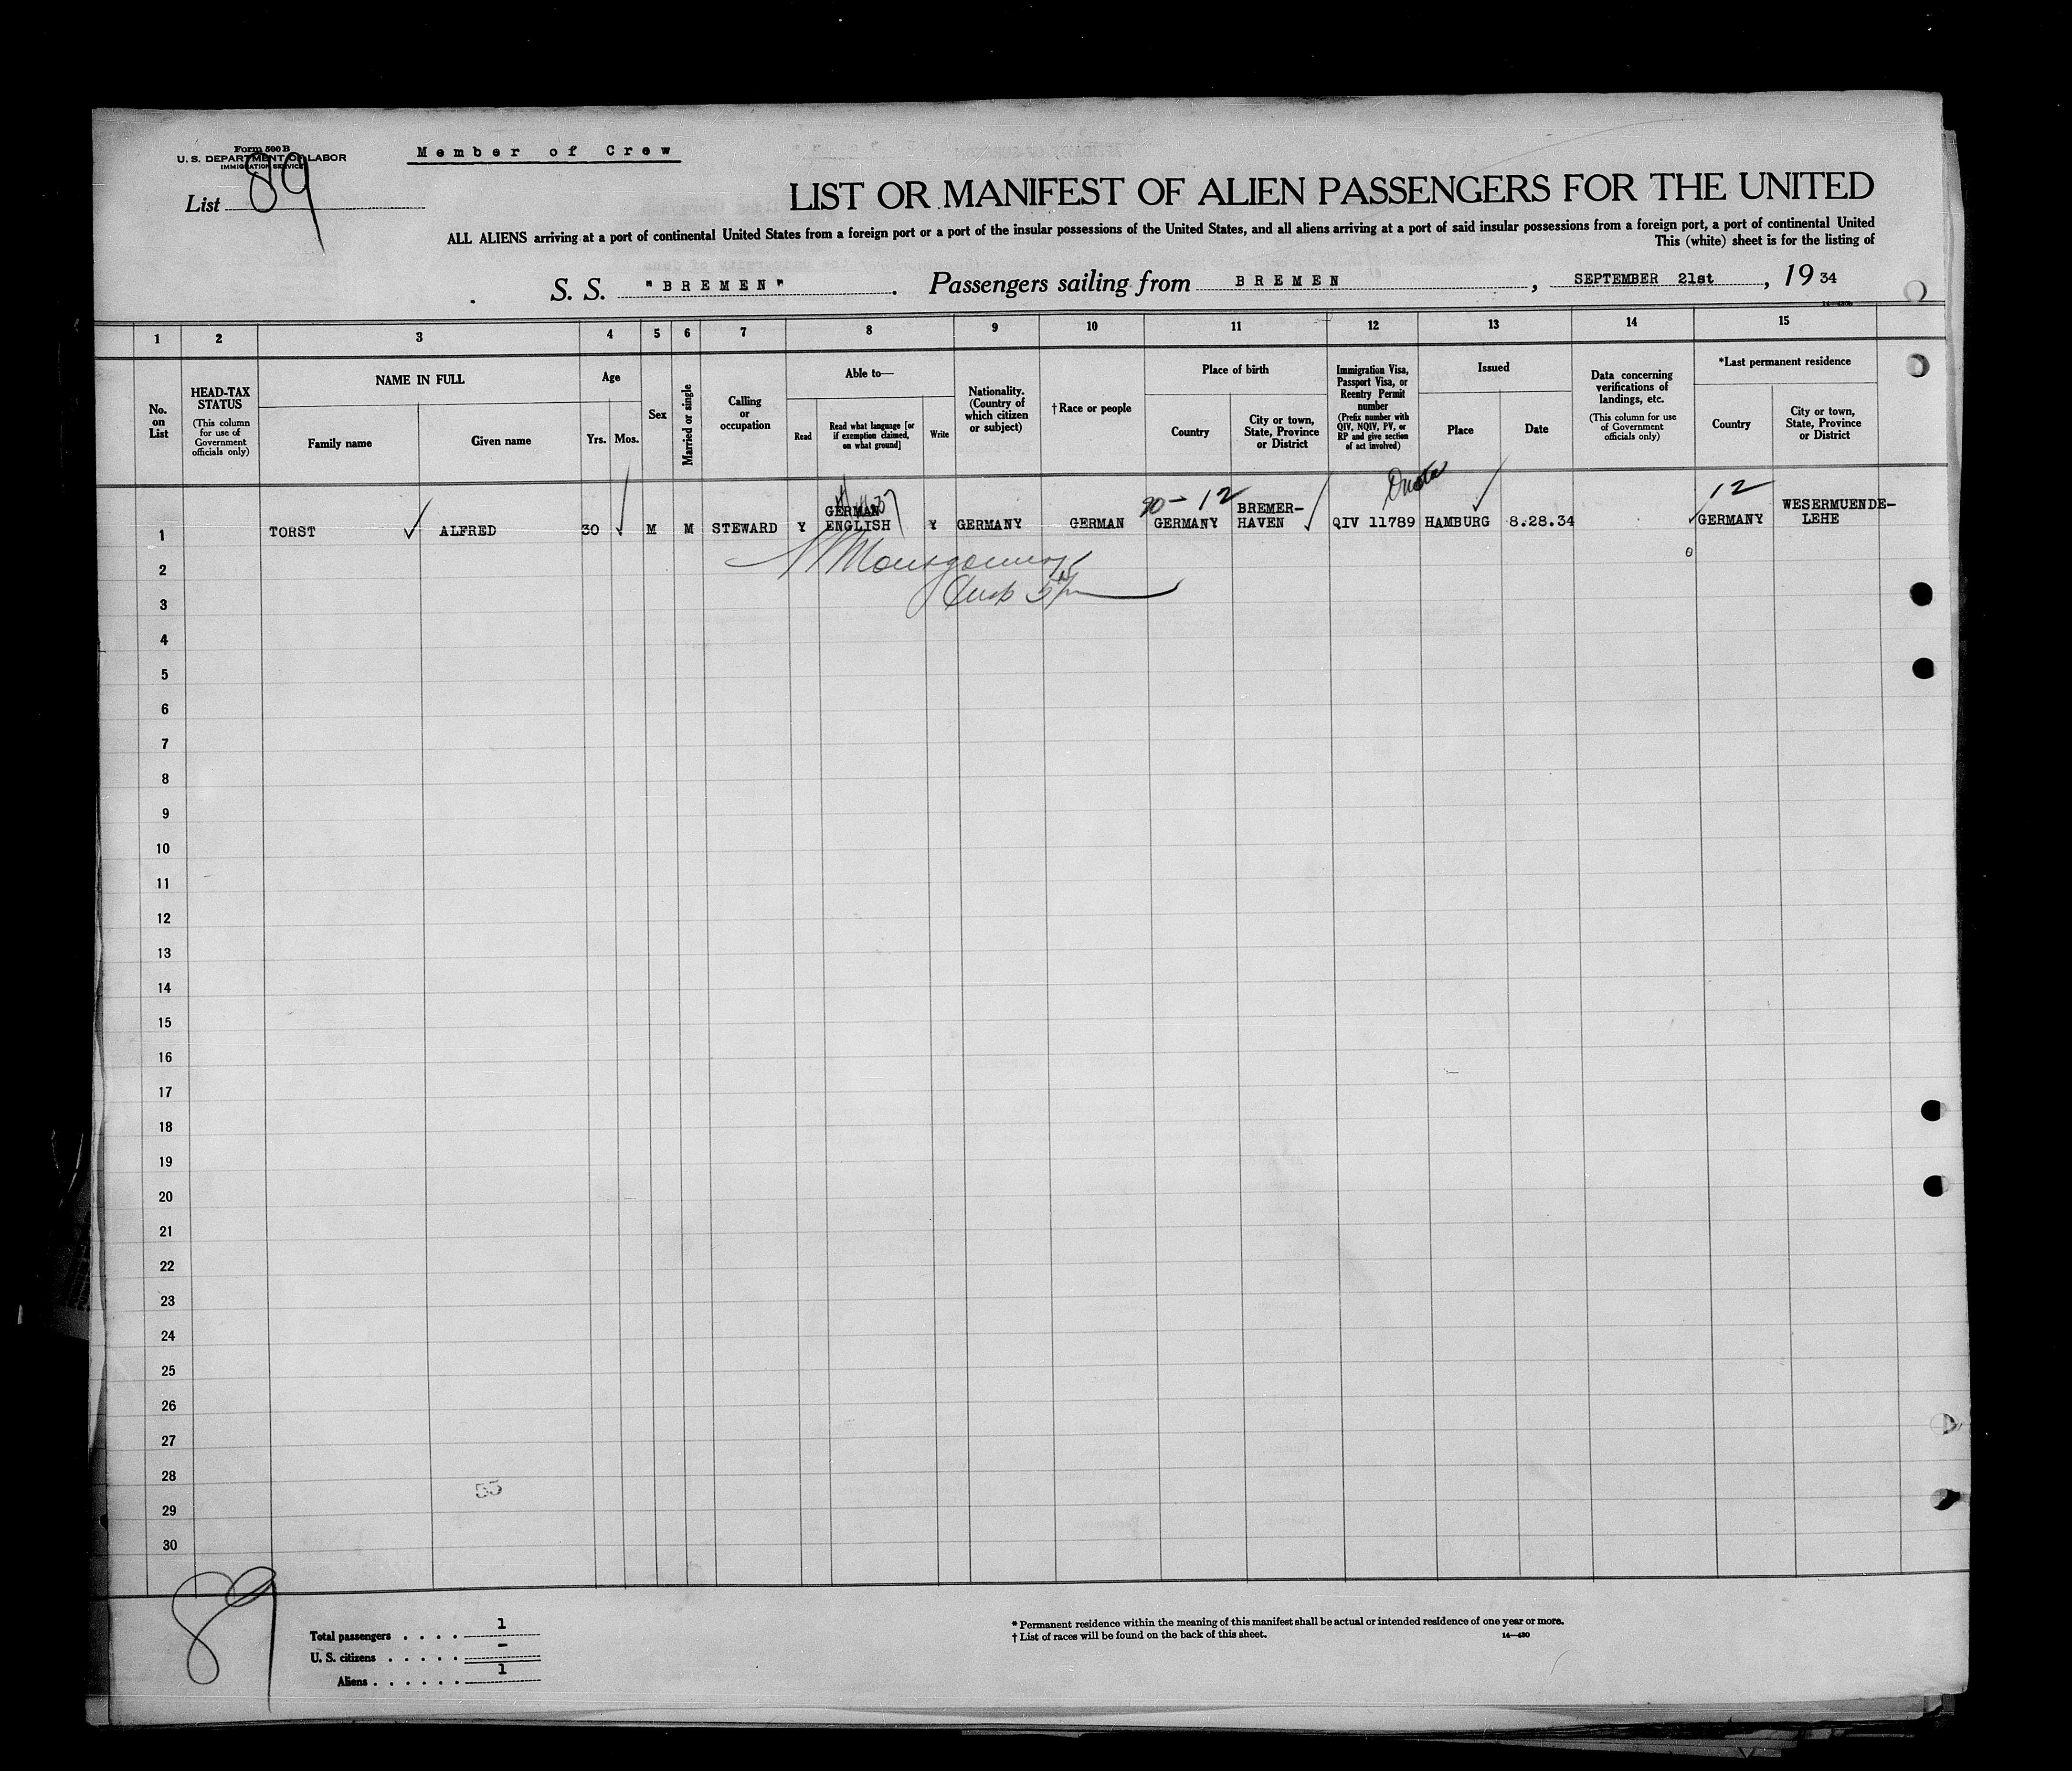 Form 500 B
U. S. DEPARTMENT OF LABOR
IMMIGRATION SERVICE
Member of Crew
List 89
LIST OR MANIFEST OF ALIEN PASSENGERS FOR THE UNITED
ALL ALIENS arriving at a port of continental United States from a foreign port or a port of the insular possessions of the United States, and all aliens arriving at a port of said insular possessions from a foreign port, a port of continental United
This (white) sheet is for the listing of
S. S. "BREMEN". Passengers sailing from BREMEN, SEPTEMBER 21st, 19 34
1 2 3 4 5 6 7 8 9 10 11 12 13 14 15
No. on List
HEAD-TAX STATUS
(This column for use of Government officials only)
NAME IN FULL
Family name
Given name
Age
Yrs. Mos.
Sex
Married or single
Calling or occupation
Able to—
Read
Read what language [or if exemption claimed, on what ground]
Write
Nationality. (Country of which citizen or subject)
†Race or people
Place of birth
Country
City or town, State, Province or District
Immigration Visa, Passport Visa, or Reentry Permit number
(Prefix number with QIV, NQIV, PV, or RP and give section of act involved)
Issued
Place
Date
Data concerning verifications of landings, etc.
(This column for use of Government officials only)
*Last permanent residence
Country
City or town, State, Province or District
Quota
90-12
12
1 TORST ✓ ALFRED 30 ✓ M M STEWARD Y GERMAN ENGLISH Y GERMANY GERMAN GERMANY BREMER-HAVEN ✓ QIV 11789 HAMBURG 8.28.34 ✓ GERMANY WESERMUENDE-LEHE
Montgomery
Insp
2
3
4
5
6
7
8
9
10
11
12
13
14
15
16
17
18
19
20
21
22
23
24
25
26
27
28
55
29
30
89
Total passengers . . . . 1
U. S. citizens . . . . . -
Aliens . . . . . . 1
* Permanent residence within the meaning of this manifest shall be actual or intended residence of one year or more.
† List of races will be found on the back of this sheet.
14—430